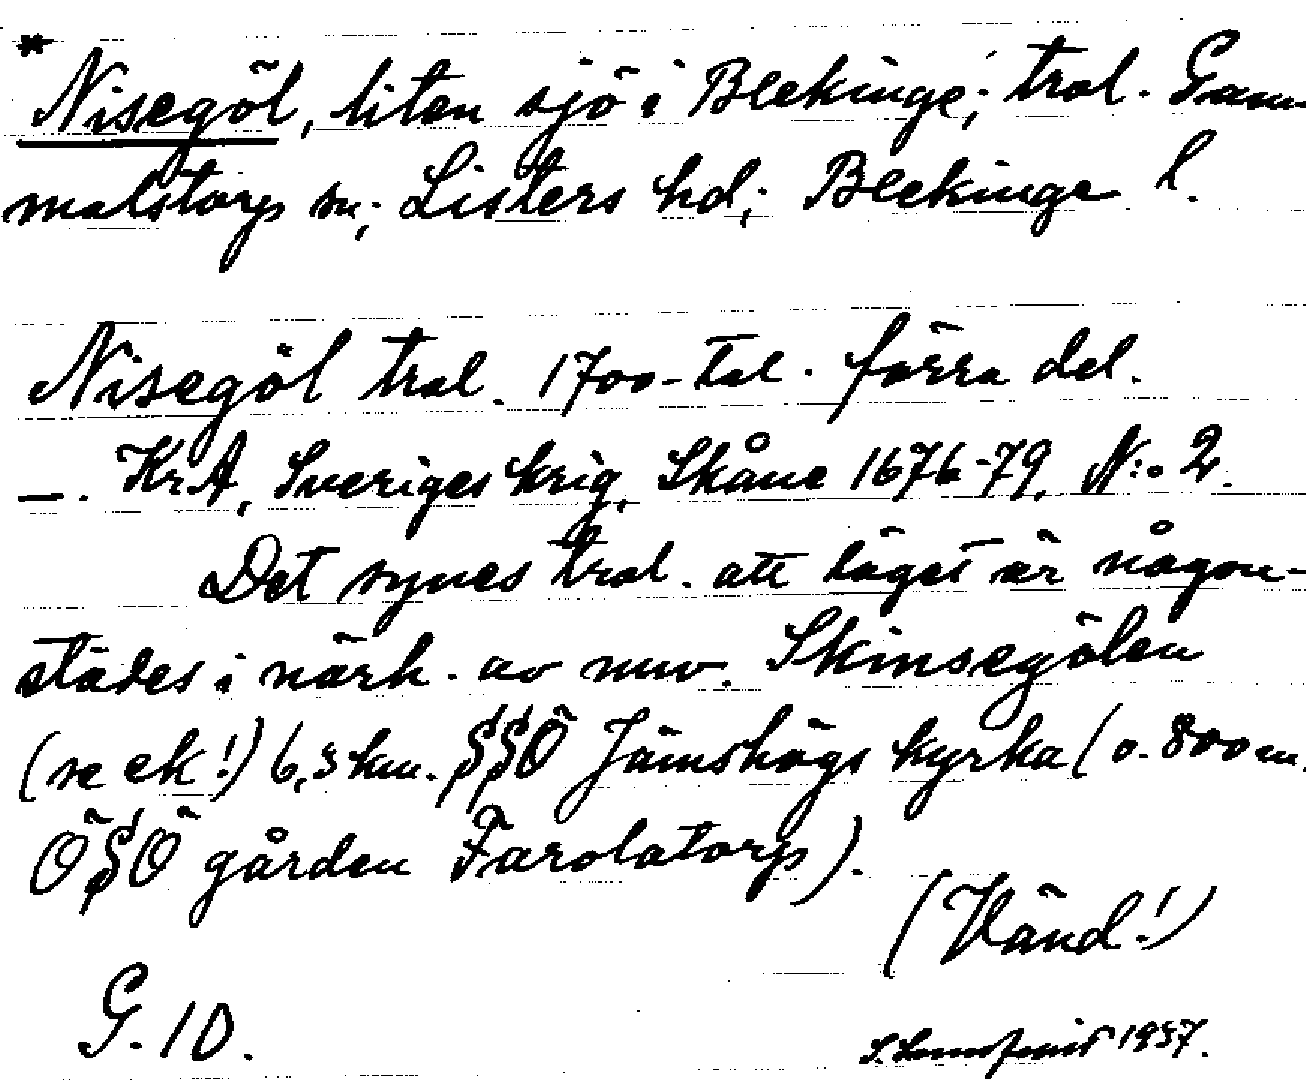 * Nisegöl, liten sjö i Blekinge; trol. Gam-
malstorp sn; Listers hd; Blekinge l.
Nisegöl trol. 1700-tal. förra del.
—. KrA, Sveriges krig, Skåne 1676-79, N:o 2.
Det synes trol. att läget är någon-
städes i närh. av nuv. Skinsegölen
(se ek!) 6,3 km. SSÖ Jämshögs kyrka (o. 800 m.
ÖSÖ gården Farolatorp).
(Vänd!)
G. 10.
1937.